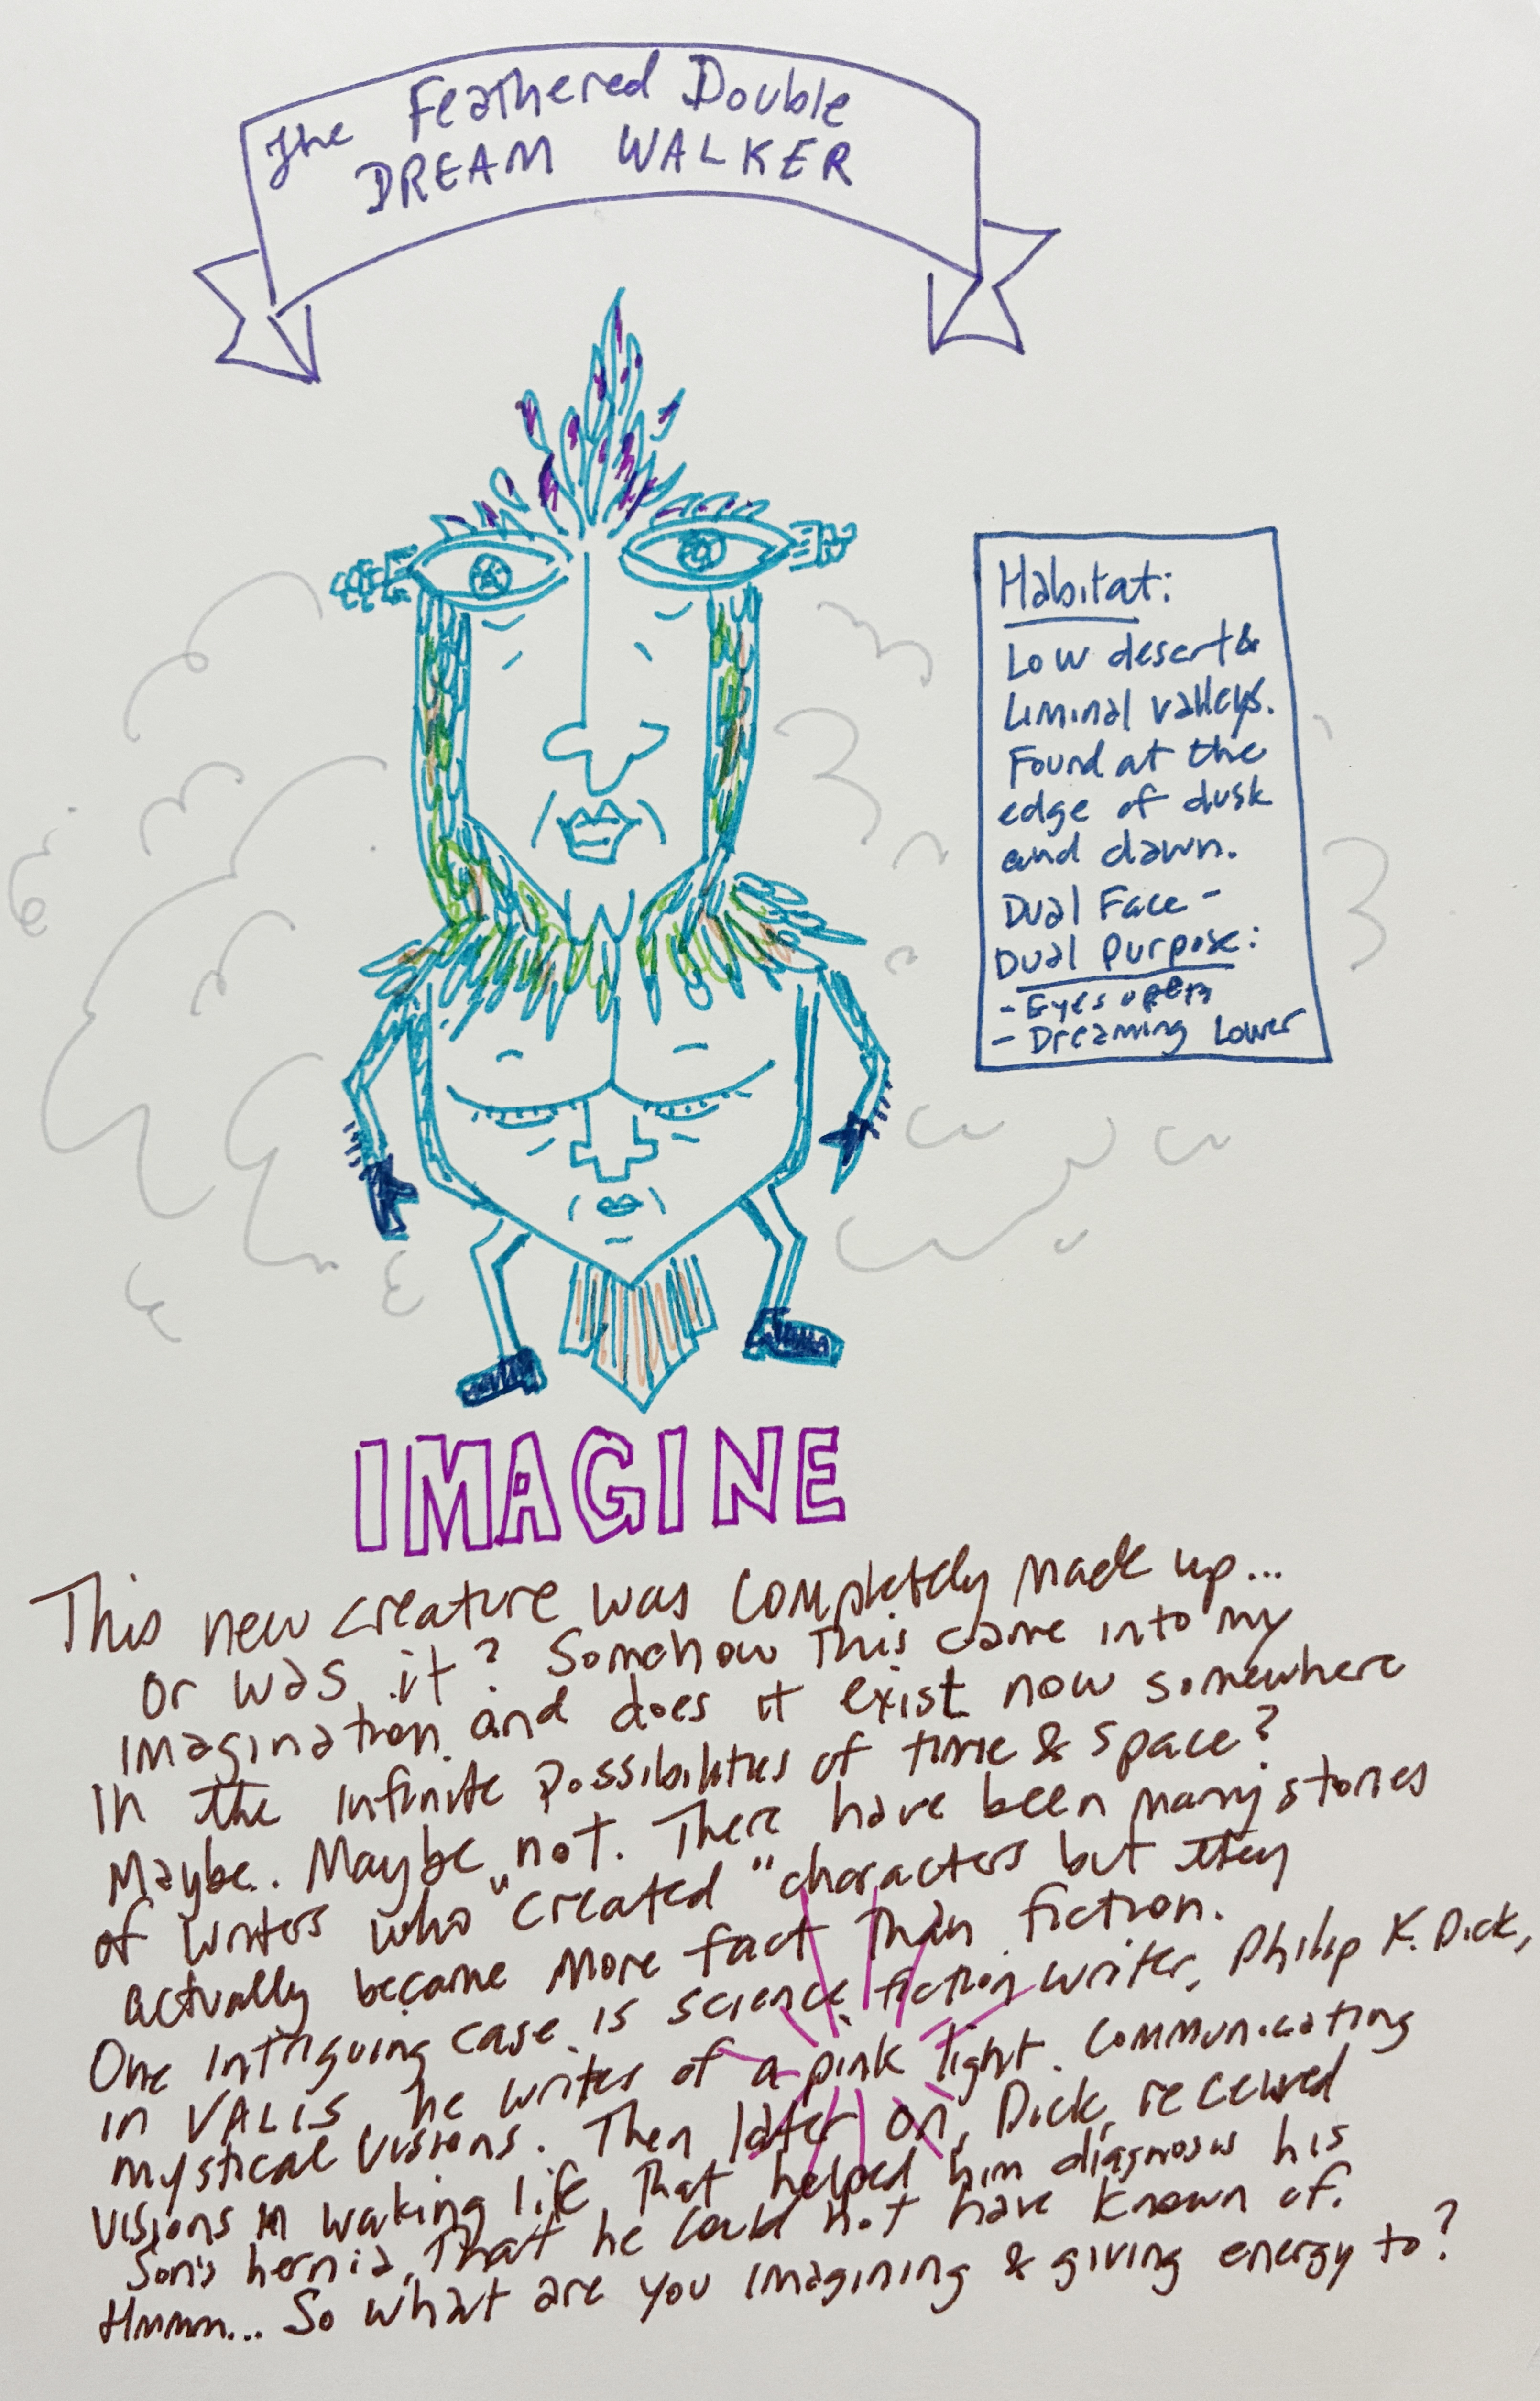 The Feathered Double
DREAM WALKER
Habitat:
Low desert &
Liminal valleys.
Found at the
edge of dusk
and dawn.
Dual Face -
Dual Purpose:
- Eyes open
- Dreaming Lower
IMAGINE
This new creature was completely made up...
or was it? Somehow this came into my
imagination and does it exist now somewhere
in the infinite possibilities of time & space?
Maybe. Maybe not. There have been many stories
of writers who "created" characters but they
actually became more fact than fiction.
One intriguing case is science fiction writer, Philip K. Dick,
in VALIS he writes of a pink light. Communicating
mystical visions. Then later on, Dick, received
visions in waking life, that helped him diagnosis his
son's hernia, that he could not have known of.
Hmmm... So what are you imagining & giving energy to?